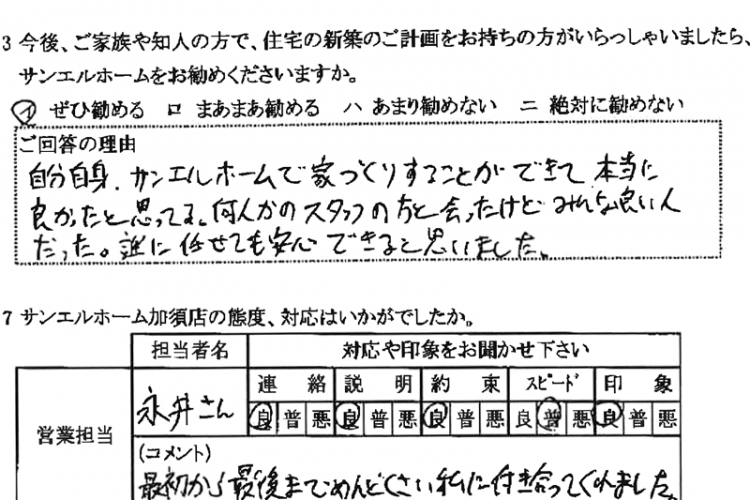 3 今後、ご家族や知人の方で、住宅の新築のご計画をお持ちの方がいらっしゃいましたら、
サンエルホームをお勧めくださいますか。
イ ぜひ勧める ロ まあまあ勧める ハ あまり勧めない ニ 絶対に勧めない
ご回答の理由
自分自身、サンエルホームで家づくりすることができて本当に
良かったと思ってる。何人かのスタッフの方と会ったけどみんな良い人
だった。誰に任せても安心できると思いました。
7 サンエルホーム加須店の態度、対応はいかがでしたか。
担当者名 対応や印象をお聞かせ下さい
連絡 説明 約束 スピード 印象
営業担当 永井さん 良 普 悪 良 普 悪 良 普 悪 良 普 悪 良 普 悪
(コメント)
最初から最後までめんどくさい私に付き合ってくれました。